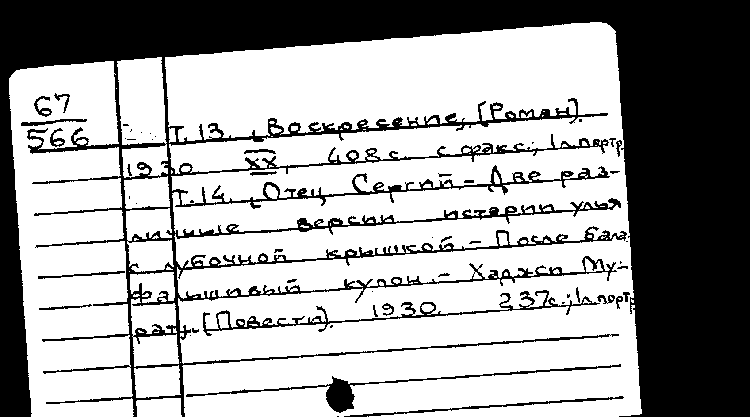 67
566
Т. 13. „Воскресение„ [Роман].
1930. XX, 408 с. с факс.; 1 л. портр.
Т. 14. „Отец Сергий – Две раз-
личные версии истории улья
с лубочной крышкой. – После бала.
Фальшивый купон. – Хаджи Му-
рат„. [Повести]. 1930. 237 с.; 1 л. портр.